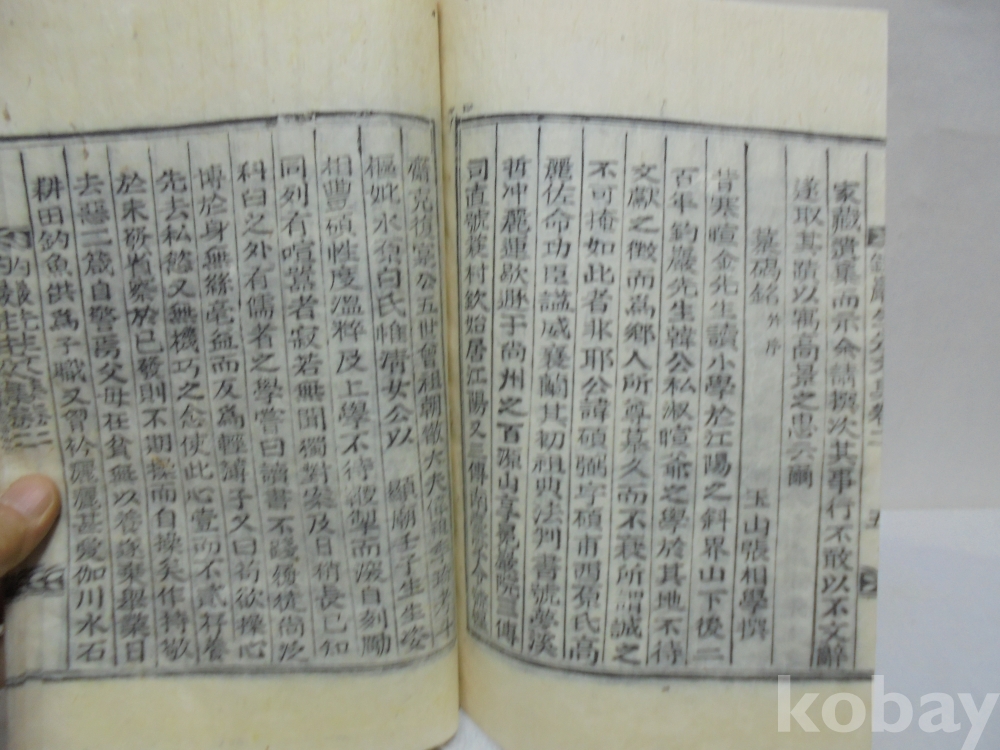 家藏遺藁而示余請撰次其事行不敢以不文辭
遂取其請以寓高景之思云爾
墓碣銘 并序
玉山張相學撰
昔寒暄金先生讀小學於江陽之斜界山下後二
百年釣巖先生韓公私淑暄爺之學於其地不待
文獻之徵而爲鄕人所尊慕久而不衰所謂誠之
不可掩如此者非耶公諱碩弼字碩甫西原氏高
麗佐命功臣諡威襄蘭其初祖典法判書號夢溪
哲冲麗運歇遯于尙州之百源山享
院三傳
司直號
村欽始居江陽又三傳
齋克復寔公五世曾祖朝
樞妣水原白氏惟淸女公以 顯廟壬子生生姿
相豊碩性度溫粹及上學不待
而濅自刻勵
同列有喧囂者寂若無聞獨對案及日稍長已知
科臼之外有儒者之學嘗曰讀書不踐徒㧡尙汲
博於身無絲毫益而反爲輕薄子又曰苟欲操心
先去私慾又無機巧之念使此心壹而不貳存養
於未發省察於已發則不期操而自操矣作持敬
去惡二箴自警焉父母在貧無以養遂棄擧業日
耕田釣魚供爲子職又曾衿灑灑甚愛伽川水石
釣巖先生文集卷二